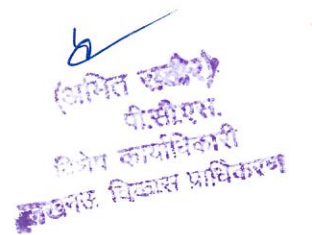 (अमित राठौर)
पी.सी.एस.
विशेष कार्याधिकारी
लखनऊ विकास प्राधिकरण